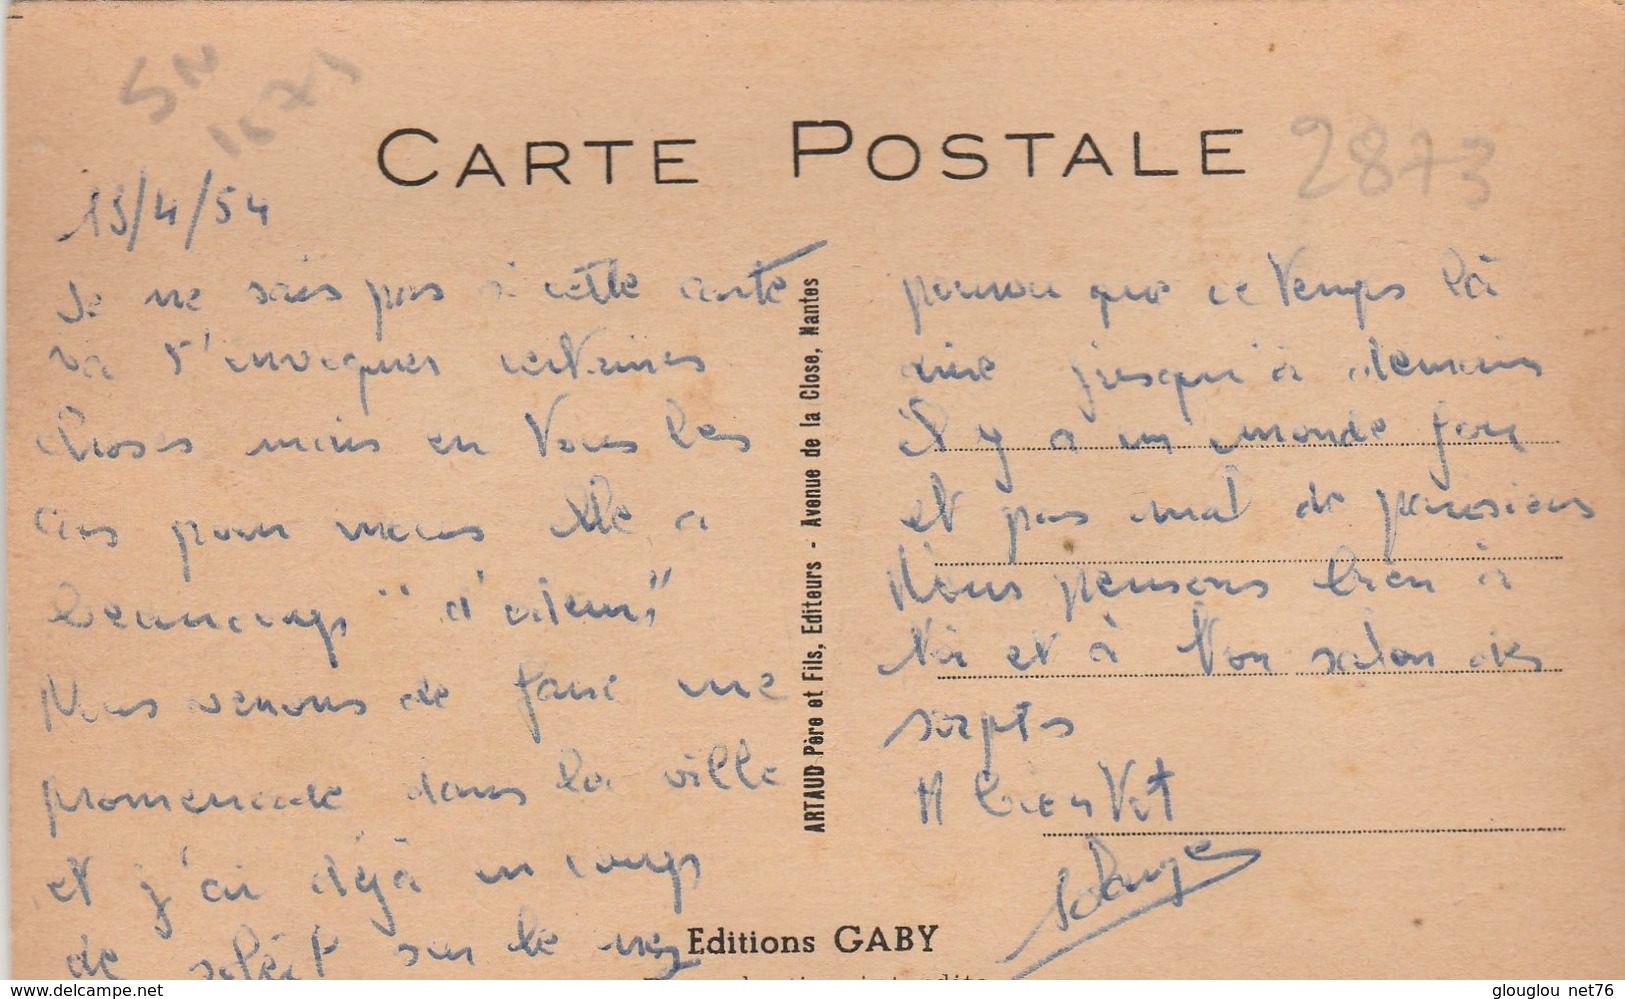 CARTE POSTALE
2873
13/4/54
Je ne sais pas si cette carte
va t'évoquer certaines
choses mais en tous les
cas pour nous elle a
beaucoup "d'odeurs"
Nous venons de faire une
promenade dans la ville
et j'ai déjà un coup
de soleil sur le nez
ARTAUD Père et Fils, Editeurs - Avenue de la Close, Nantes
pourvu que ce temps là
dure jusqu'à demain
Il y a un monde fou
et pas mal de parisiens
Nous pensons bien à
toi et à ton salon des
A bientôt
Solange
Editions GABY
glouglou net76